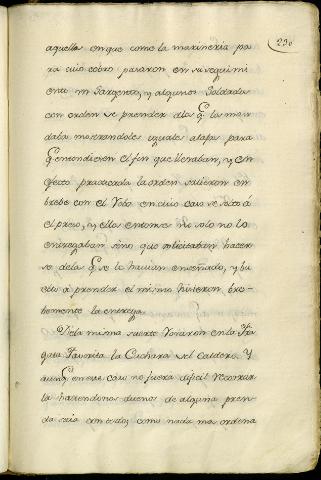 230
aquella enque come la marineria pa
ra cuio cobro pasaron en su seguimi
ento un Sargento, y algunos Soldados
con orden se prender dlos q. los man
daba mostrandoles iguales alajas para
q. entendiesen el fin que llevaban, y en
efecto practicada la orden salieron en
brebe con el Robo en cuio caso se solto á
el preso, y ellos entonces no solo no lo
entregaban sino que solicitaban hacer
se dela q. se le havian enseñado, y bu
elto á prender el mismo hicieron bre-
bemente la entrega.
Dela misma suerte Robaron en la Fra
gata Favorita la Cuchara del Caldero. Y
aunq. en este caso no fuera dificil recobrar
la haciendonos dueños de alguna pren-
da suia con todo, como nada mas ordena